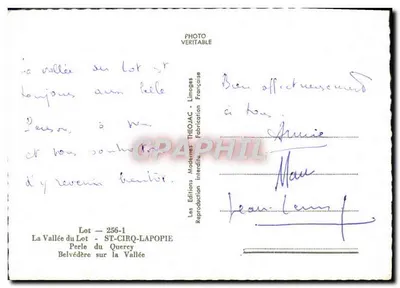 PHOTO
VERITABLE
la vallée du Lot est
toujours aussi belle
Pensons à
et vous
d'y revenir bientôt.
Lot — 256-1
La Vallée du Lot - ST-CIRQ-LAPOPIE
Perle du Quercy
Belvédère sur la Vallée
Les Editions Modernes THEOJAC - Limoges
Reproduction Interdite - Fabrication Française
Bien affectueusement
à tous.
Annie
Jean-Louis
CPARAMA.COM